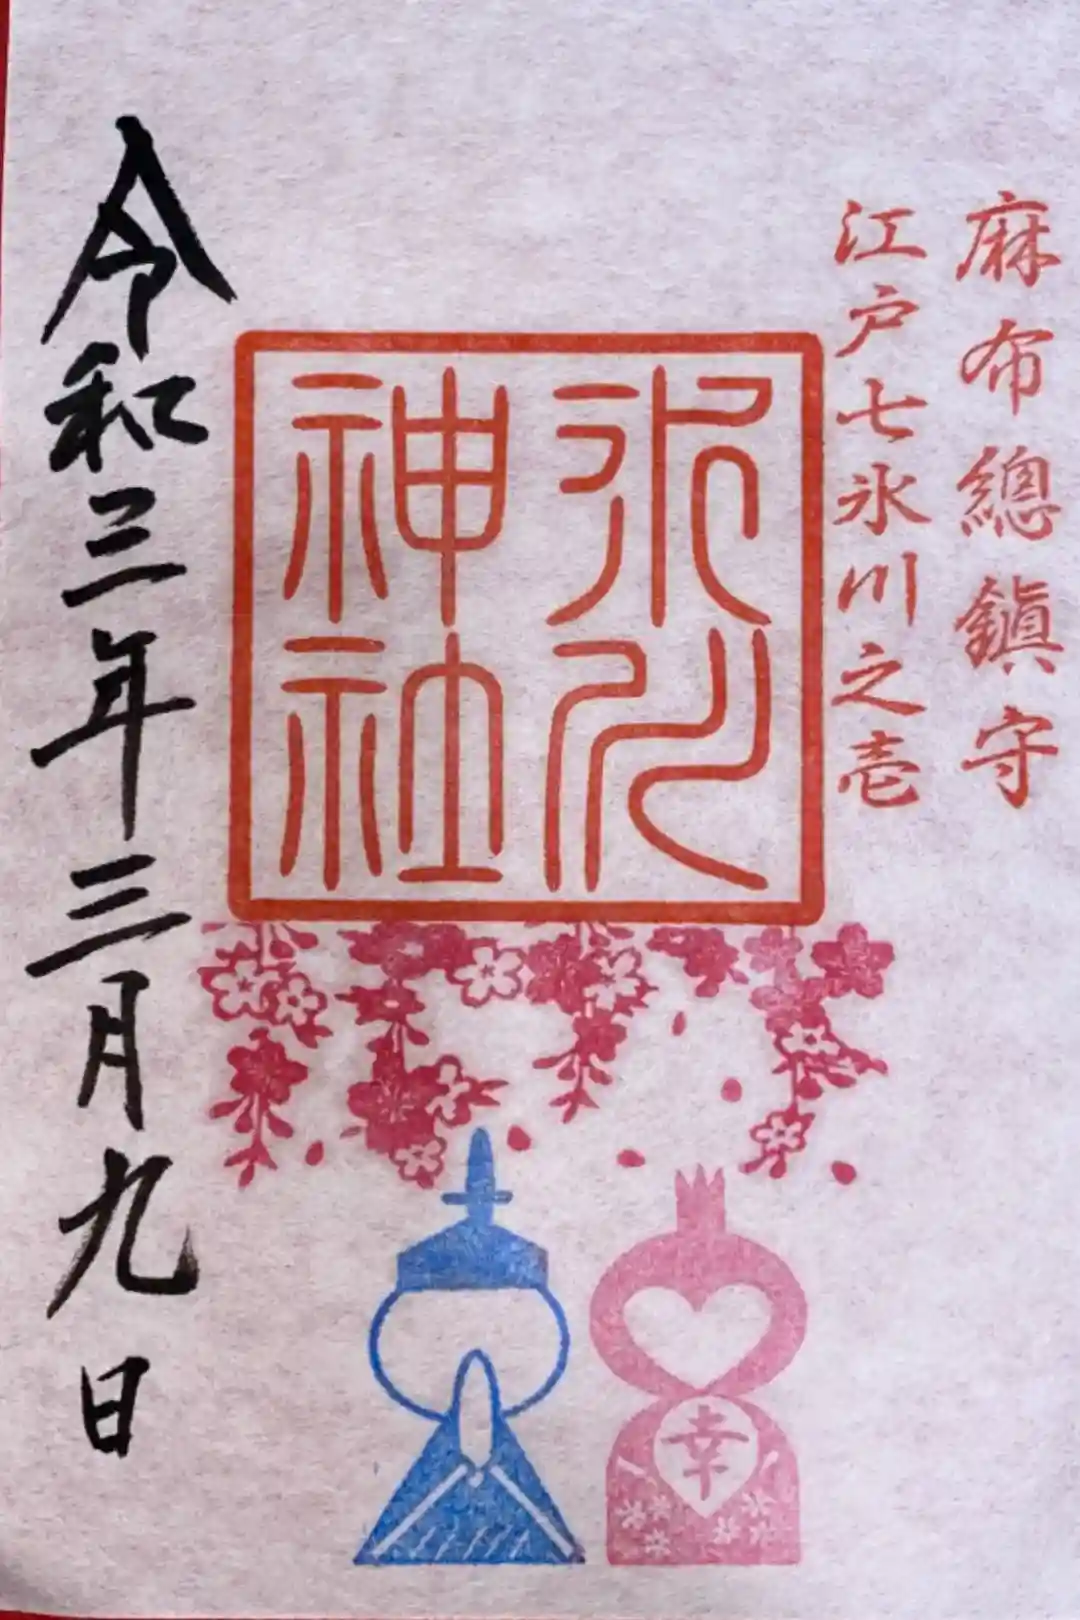 麻布總鎭守
江戸七氷川之壱
氷川
神社
令和三年三月九日
幸